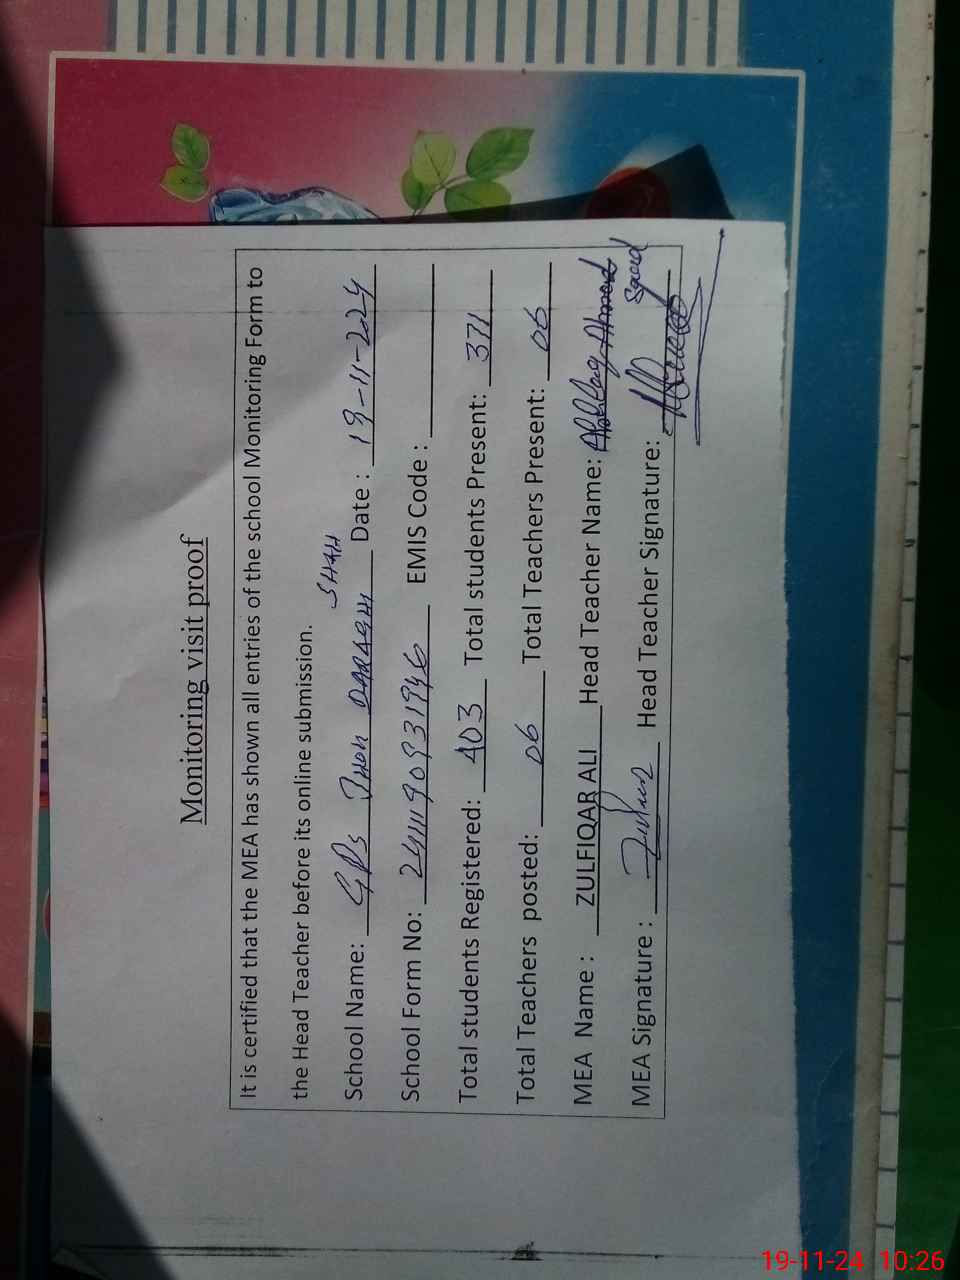 Monitoring visit proof
It is certified that the MEA has shown all entries of the school Monitoring Form to
the Head Teacher before its online submission.
School Name: GPS DARGAHI SHAH Date : 19-11-224
School Form No: EMIS Code :
Total students Registered: 403 Total students Present: 371
Total Teachers posted: 06 Total Teachers Present: 06
MEA Name : ZULFIQAR ALI Head Teacher Name: Ahmed Saeed
MEA Signature : Head Teacher Signature:
19-11-24 10:26